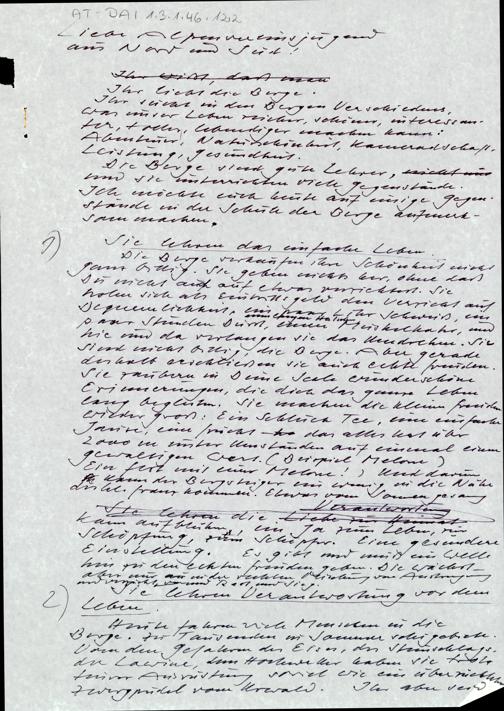 AT-DAI 1.3.1.46.12.2
Liebe Alpenvereinsjugend
aus Nord und Süd!
Ihr wißt, daß man
Ihr liebt die Berge.
Ihr sucht in den Bergen Verschiedenes,
was unser Leben reicher, schöner, interessan-
ter, toller, lebendiger machen kann:
Abenteuer, Naturschönheit, Kameradschaft,
Leistung, Gesundheit.
Die Berge sind gute Lehrer,
und sie unterrichten viele Gegenstände.
Ich möchte euch heute auf einige Gegen-
stände in der Schule der Berge aufmerk-
sam machen.
1) Sie lehren das einfache Leben
Die Berge verkaufen ihre Schönheit nicht
ganz billig. Sie geben nichts her, ohne daß
Du nicht auf etwas verzichtest. Sie
holen sich als Eintrittsgeld den Verzicht auf
Bequemlichkeit, Schweiß, ein
paar Stunden Durst, einen Muskelkater, und
hie und da verlangen sie das Umdrehen. Sie
sind nicht billig, die Berge. Aber gerade
deshalb sie auch echte Freuden.
Sie zaubern in Deine Seele wunderschöne
Erinnerungen, die dich das ganze Leben
lang beglücken. Sie machen die kleinen Freuden
wieder groß: Ein Schluck Tee, eine einfache
Jause, eine Frucht das alles hat über
2000 m unter Umständen auf einmal einen
gewaltigen Wert. (Beispiel Melone)
Ein Fest mit einer Melone!) Und darum
kann der Bergsteiger ein wenig in die Nähe
des hl. Franz kommen. Etwas vom Sonnengesang
Sie lehren die Liebe zur Verantwortung
kann aufblühen, ein Ja zum Leben, zur
Schöpfung, zum Schöpfer. Eine gesündere
Einstellung. Es gibt und muß ein Welle
hin zu den echten Freuden geben. Die wächst
aber nur
2) Sie lehren Verantwortung vor dem
Leben.
Heute fahren viele Menschen in die
Berge. Zu Tausenden im Sommer
Von den Gefahren des Eises, des Steinschlags,
der Lawine, dem Hochwetter haben sie trotz
feiner Ausrüstung soviel wie ein
Zwergpudel vom Urwald. Ihr aber seid